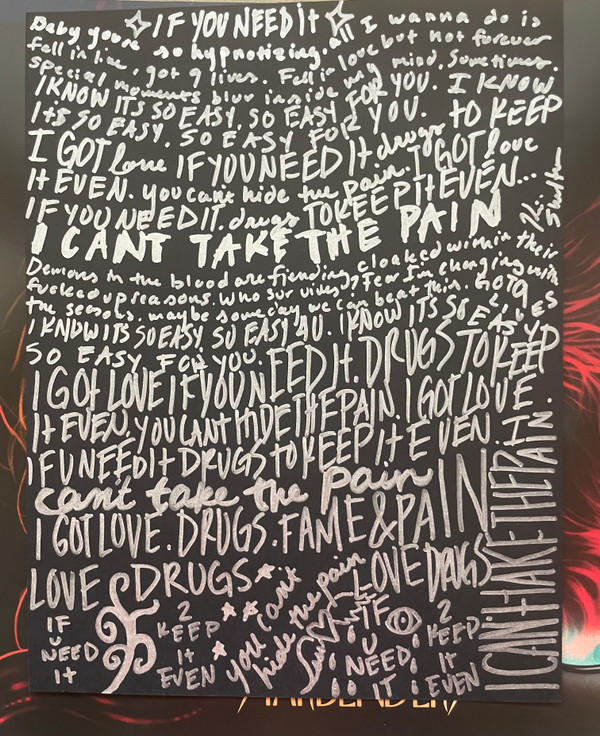 IF YOU NEED It
Baby you're so hypnotizing, all I wanna do is
fall in line, got 9 lives. Fall in love but not forever
special moments blur inside my mind, Sometimes.
I KNOW ITS SO EASY. SO EASY FOR YOU. I KNOW
ItS SO EASY. SO EASY FOR YOU. TO KEEP
I GOT love IF YOU NEED It drugs
It EVEN. you can't hide the pain. I GOT love
IF YOU NEED IT. drugs TO KEEP It EVEN...
I CANT TAKE THE PAIN
Demons in the blood are fiending, cloaked within their
fucked up reasons. Who survives? Fear I'm changing with
the seasons, maybe someday we can beat this. GOT 9 LIVES
I KNOW ITS SO EASY SO EASY 4U. I KNOW ITS SO EASY
SO EASY FOR YOU.
I GOT LOVE IF YOU NEED It. DRUGS TO KEEP
It EVEN. YOU CANT HIDE THE PAIN. I GOT LOVE
IF U NEED It DRUGS tO KEEP It EVEN. I
can't take the pain
I GOT LOVE. DRUGS. FAME & PAIN
LOVE DRUGS
LOVE DRUGS
IF
U
NEED
It
2
KEEP
It
EVEN
you can't
hide the pain
IF
U
NEED
IT
2
KEEP
It
EVEN
I CAN'T TAKE THE PAIN.